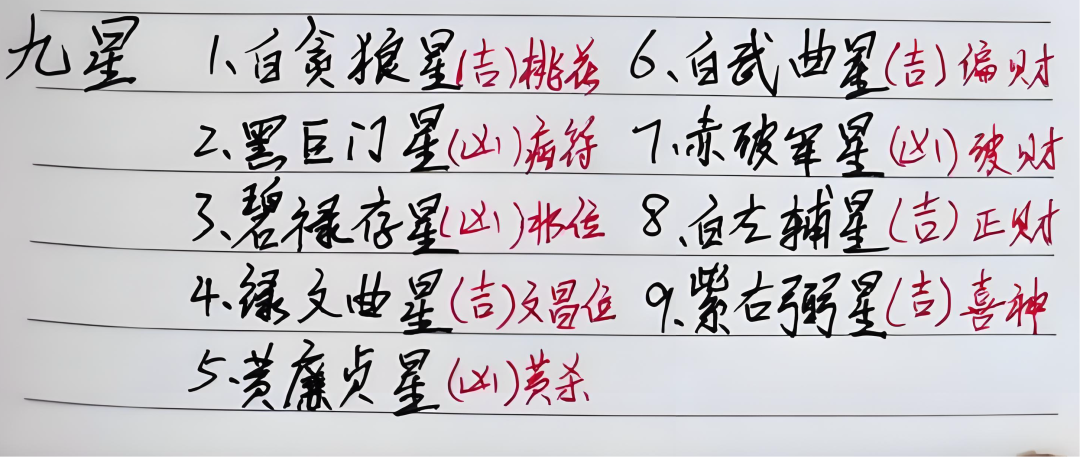 九星 1、白贪狼星(吉)桃花 6、白武曲星(吉)偏财
2、黑巨门星(凶)病符 7、赤破军星(凶)破财
3、碧禄存星(凶)非位 8、白左辅星(吉)正财
4、绿文曲星(吉)文昌位 9、紫右弼星(吉)喜神
5、黄廉贞星(凶)黄杀